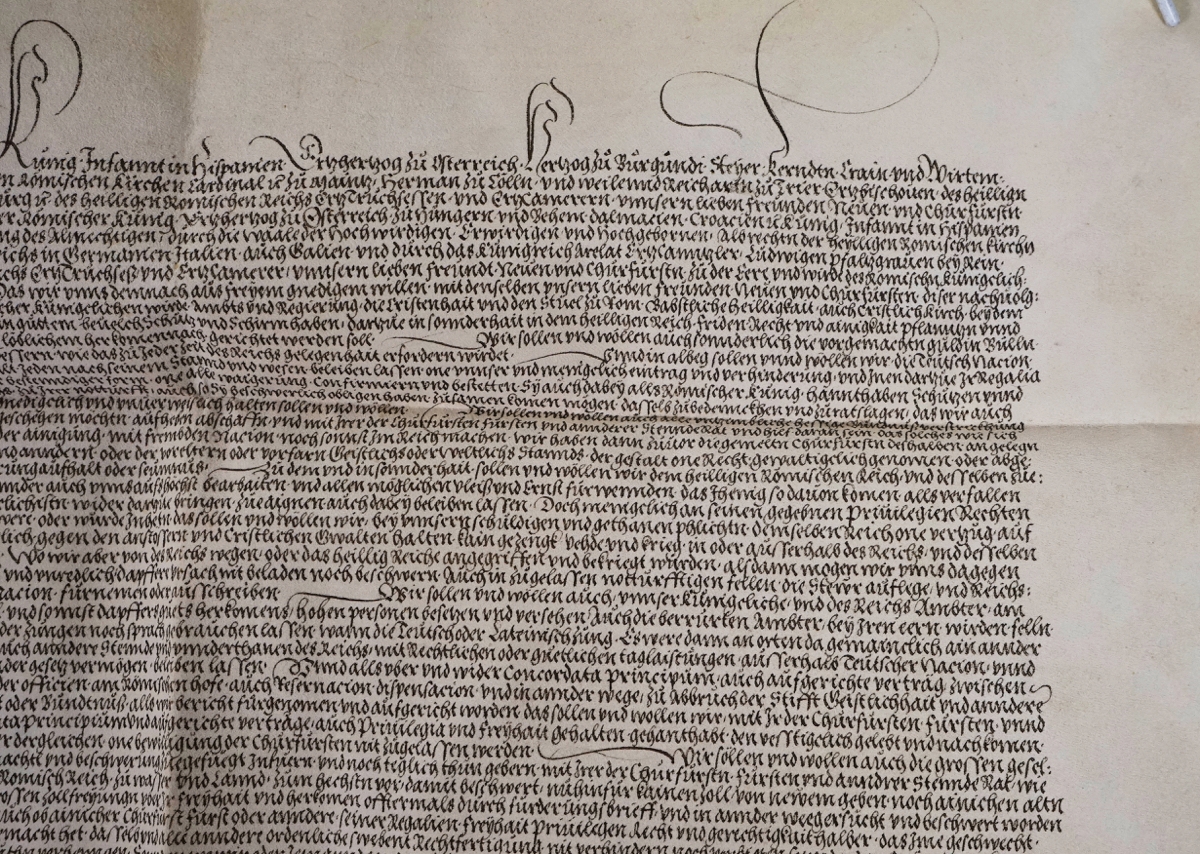 Kunig · Infannt in Hispanien · Ertzhertzog zů Osterreich · Hertzog zů Burgundi · Steyer · Kerndtn · Crain vnd Wirtem:
n Römischen Kirchen Cardinal ꝛc zů Maintz · Herman zů Cölln · vnd weilennd Reicharten zů Trier Ertzbischouen · des heilligen
urg ꝛc des heilligen Römischen Reichs Ertztruchsessen · vnd Ertzcamerern · vnnsern lieben freunden Neuen vnd Churfürstn
er Römischer Kunig · Ertzhertzog zů Österreich zů Hungern vnd Behem dalmacien · Croacien ꝛc Kunig · Infannt in Hispanien
ng des Almechtigen · durch die waale der Hochwirdigen · Erwirdigen vnd Hochgebornen · Albrechtn der heylligen Römischen kirchn
eichs in Germanien Italien · auch Galien · vnd durch das Kunigreich Arelat Ertzcanntzler · Ludwigen pfaltzgrauen bey Rein
ichs Ertztruchseß vnd Ertzcamerer · vnnsern lieben freundt · Neuen vnd Churfürstn · zů der Eere vnd wirde des Römischn kunigelich:
Das wir vnns demnach aus freyem gnedigem willen · mit denselben vnsern lieben freunden Neuen vnd Churfürsten · diser nachuolg:
cher kunigelichen wirde · ambts vnd Regierung · die Cristenhait vnd den Stuel zů Rom · Babstliche Heilligkait · auch Cristlich kirch · bey dem
in gůttem beuelch Schutz vnd Schirm haben · dartzue in sonnderhait in dem heilligen Reich · friden Recht vnd ainigkait pflanntzn vnnd
löblichem herkomen nach gerichtet werden soll · Wir sollen vnd wöllen auch sonnderlich die vorgemachten guldin Bulln
essern · wie das zů Jeder Zeit des Reichs gelegenhait erfordern wirdet · Vnnd in albeg sollen vnnd wöllen wir · die Teutsch Nacion
ain Jeden nach seinem Stannd vnd wesen beleiben lassen · one vnnser vnd menigelich eintrag vnd verhinderung · vnd Jnen dartzue Jr Regalia
one alle waigerung · Confirmiern vnd bestetten · Sy auch dabey alls Römischer kunig · hannthaben Schützen vnnd
auch so Sy beschwerlich obligen haben zusamen komen mögen · das selb zubedennckhen vnd zuratslagen · das wir auch
nedigelich vnd vnuerweislich halten sollen vnd wöllen · Wir sollen vnd wöllen auch alle
geschehen möchten · aufheben abschaffn vnd mit Jrer der Churfürsten fürsten vnd annderer Stennde Rat vnd hilf daran sein das solches wie sich
der ainigung · mit frembden Nacion · noch sonnst Jm Reich machen · wir haben dann zuuor die gemelten Churfürsten deshalben an gelegn
nd anndern · oder der voreltern oder vorfarn Geistlichs oder weltlichs Stannds · der gestalt one Recht · gewaltigelich genomen · oder abge:
erung aufhalt oder seumnus · Zu dem vnd in sonnderhait · sollen vnd wöllen wir dem heilligen Römischen Reich vnd desselben zue:
nder auch vnns aufs höchst bearbaiten vnd allen möglichen vleiß vnd Ernst fürwennden · das Jhenig so dauon komen · alls verfallen
clichistn wider dartzue bringen · zue aignen auch dabey beleiben lassen · Doch menigelich an seinen gegebnen Priuilegien Rechten
were · oder würde Jnhetn das sollen vnd wöllen wir · bey vnnsern schuldigen vnd gethanen phlichtn · demselben Reich one vertzug auf
lich · gegen den anstossern vnd Cristlichen Gwalten halten · kain getzengk vehde vnd krieg · in oder ausserhalb des Reichs vnd desselben
Wo wir aber von des Reichs wegen · oder das heillig Reiche angegriffen vnd bekriegt wurden · alsdann mögen wir vnns dagegen
vnd vnredlich dapffer vrsach nit beladen noch beschwern · Auch in zugelassen notturfftigen fellen · die Stewr auflege · vnd Reichs:
Nacion · fürnemen oder ausschreiben · Wir sollen vnd wöllen auch · vnnser kunigeliche · vnd des Reichs Ambter · am
vnd sonnst dapffers guets herkomens · hohen personen besetzen vnd versehen · Auch die berürrten Ambter · bey Jren eern wirden felln
der Zungen noch sprach gebrauchen lassen · wann die Teutsch oder Lateinisch zung · Es were dann an orten da gemainclich ain annder
auch anndere Stennde vnd vnnderthanen des Reichs · mit Rechtlichen oder guetlichen taglaistungen · ausserhalb Teutscher Nacion · vnnd
der gesetz vermögen · beleiben lassen · Vnnd alls vber vnd wider Concordata Principum · auch aufgerichte vertrag zwischen
der officien · am Römischen hofe · auch Reseruacion · dispensacion · vnd in annder wege · zů Abbruch der Stifft Geistlichhait vnd anndere
oder Bündtnuß · alls wir bericht fürgenomen vnd aufgericht worden · das sollen vnd wöllen wir · mit Jr der Churfürsten · fürsten · vnnd
ta Principium vnd aufgerichte verträge · auch Priuilegia vnd freyhait gehalten gehannthabt · den vesstigelich gelebt vnd nachkomen ·
er dergleichen · one bewilligung der Churfürsten nit zugelassen werden · Wir sollen vnd wöllen auch die grossen gesel:
nachtl vnd beschwerung zugefuegt Infuern · vnd noch teglich thun gebern · mit Jrer der Churfürstn · fürsten vnd anndrer Stennde Rat · wie
Römisch Reich · zu wasser vnd Lannd · zum hechsten vor damit beschwert · nun hinfur kainen Zoll · von newem geben · noch ainichen altn
freyhait vnd herkomen offtermals durch fürderungsbrieff · vnd in annder weeg ersucht vnd beschwert worden
auch ob ainicher Churfürst fürst oder anndere · seiner Regalien · freyhait Priuilegen Recht vnd gerechtigkait halber · das Jme geschwecht ·
gemacht het · da selb vnd alle anndere ordenliche swebent Rechtfertigung nit verhindern